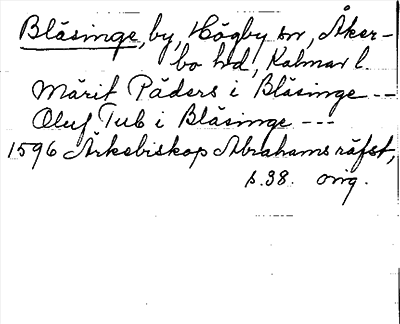 Bläsinge, by, Högby sn, Åker-
bo hd, Kalmar l.
Märit Päders i Bläsinge ---
Oluf Tub i Bläsinge ---
1596 Ärkebiskop Abrahams räfst,
s. 38. orig.